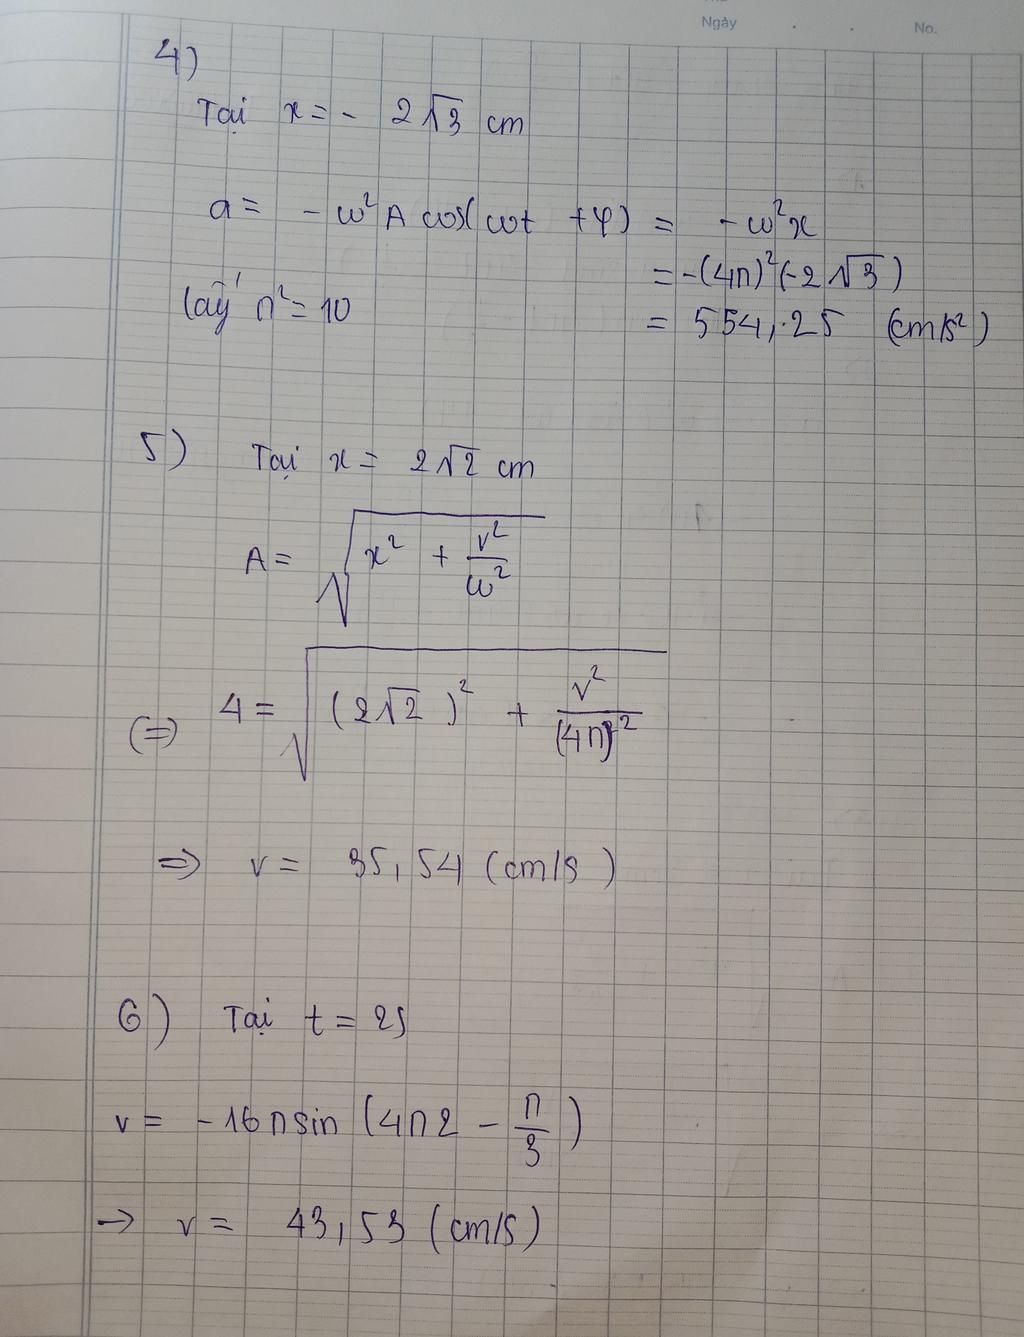 Ngày . . No.
4)
Tại x = - 2√3 cm
a = - ω²A cos(ωt + φ) = - ω²x
= -(4π)²(-2√3)
lấy π² = 10
= 554,25 (cm/s²)
5) Tại x = 2√2 cm
A = √(x² + v²/ω²)
(=) 4 = √((2√2)² + v²/(4π)²)
=> v = 35,54 (cm/s)
6) Tại t = 2s
v = -16π sin (4π2 - π/3)
-> v = 43,53 (cm/s)